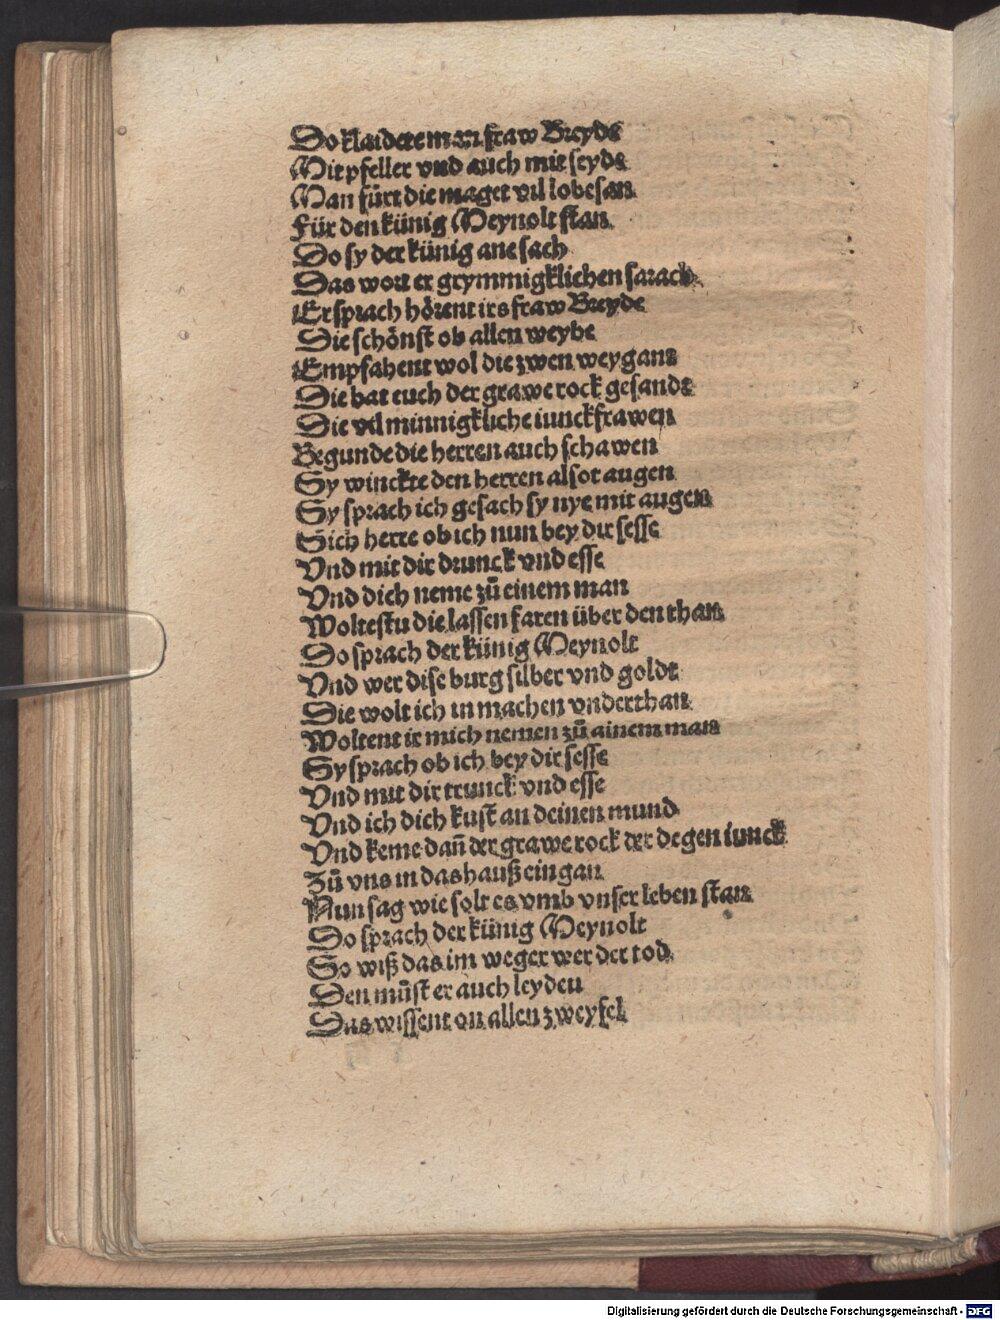 Do klaidete man fraw Breyde
Mit pfeller vnd auch mit seyde
Man fürt die maget vil lobesan
Für den künig Meynolt stan
Do sy der künig ane sach
Das wort er grymmigklichen sarach
Er sprach hörent irs fraw Breyde
Die schönst ob allen weybe
Empfahent wol die zwen weygant
Die hat euch der grawe rock gesandt
Die vil minnigkliche iunckfrawen
Begunde die herren auch schawen
Sy winckte den herren alsot augen
Sy sprach ich gesach sy nye mit augen
Sich herre ob ich nun bey dir sesse
Vnd mit dir drunck vnd esse
Vnd dich neme zů einem man
Woltestu die lassen faren über den than
Do sprach der künig Meynolt
Vnd wer dise burg silber vnd goldt
Die wolt ich in machen vnderthan
Woltent ir mich nemen zů ainem man
Sy sprach ob ich bey dir sesse
Vnd mit dir trunck vnd esse
Vnd ich dich kust an deinen mund
Vnd keme dañ der grawe rock der degen iunck
Zů vns in das hauß eingan
Nun sag wie solt es vmb vnser leben stan
Do sprach der künig Meynolt
So wiß das im weger wer der tod
Den můst er auch leyden
Das wissent on allen zweyfel
Digitalisierung gefördert durch die Deutsche Forschungsgemeinschaft - DFG